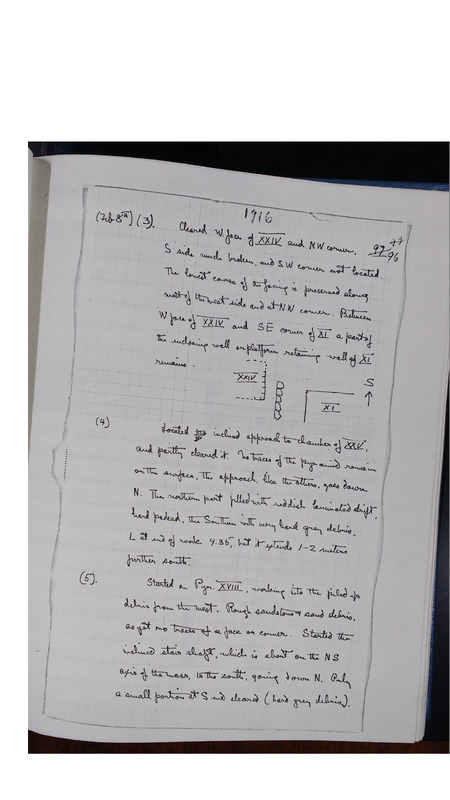 1916
(Feb 8th) (3). Cleared W face of XXIV and NW corner. 97 77
96
S side much broken, and SW corner not located.
The lowest course of the facing is preserved along
most of the west side and at NW corner. Between
W face of XXIV and SE corner of XI a part of
the inclosing wall or platform retaining wall of XI
remains.
S
XXIV
XI
(4) Located inclined approach to chamber of XXV,
and partly cleared it. No traces of the pyramid remain
on the surface, the approach, like the others, goes down
N. The northern part filled with reddish laminated drift,
hard packed, the Southern with very hard grey debris.
L at end of work 4.35, but it extends 1-2 meters
further south.
(5). Started on Pyr. XVIII, working into the piled up
debris from the west. Rough sandstone & sand debris,
as yet no traces of a face or corner. Started the
inclined stair shaft, which is about on the NS
axis of the mass, to the south, going down N. Only
a small portion at S end cleared (hard grey debris).